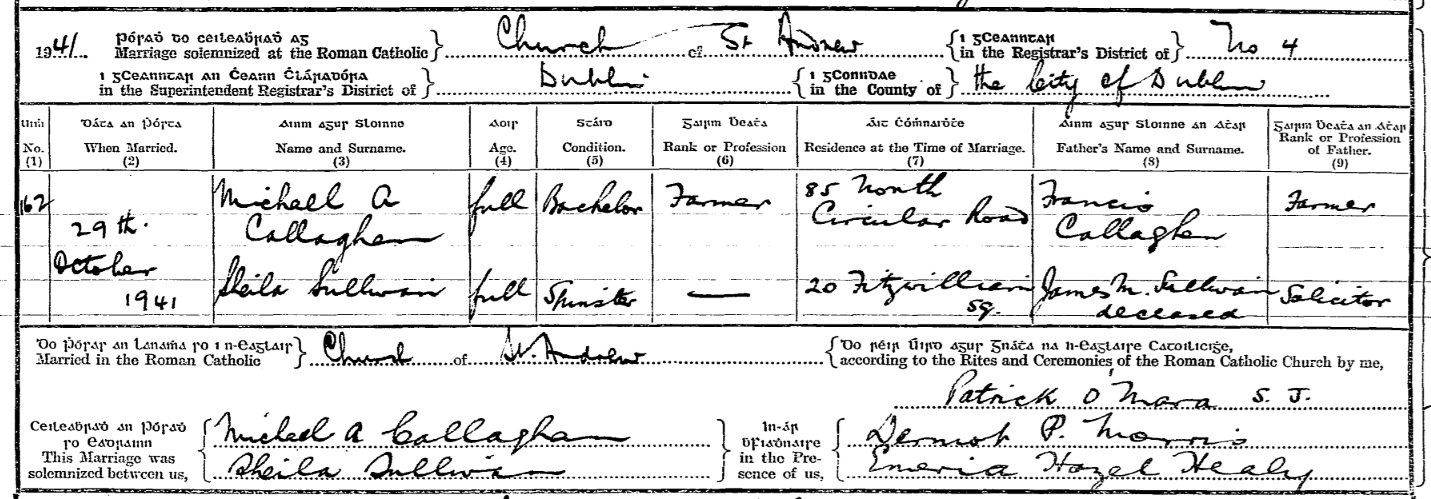 1941. Pósaḋ do ceileaḃraḋ ag
Marriage solemnized at the Roman Catholic } Church of St Andrew { i gCeanntar
in the Registrar's District of } No 4
i gCeanntar an Ċeann Ċláraḋóra
in the Superintendent Registrar's District of } Dublin { i gConndae
in the County of } the City of Dublin
Uiṁ Dáta an Pósta Ainm agus Sloinne Aois Stáid Gairm Ḃeaṫa Áit Ċóṁnaiḋṫe Ainm agus Sloinne an Aṫar Gairm Ḃeaṫa an Aṫar
No. When Married. Name and Surname. Age. Condition. Rank or Profession Residence at the Time of Marriage. Father's Name and Surname. Rank or Profession of Father.
(1) (2) (3) (4) (5) (6) (7) (8) (9)
162 29th. October 1941
Michael A Callaghan full Bachelor Farmer 85 North Circular Road Francis Callaghan Farmer
Sheila Sullivan full Spinster — 20 Fitzwilliam Sq. James M. Sullivan deceased Solicitor
Do pósaḋ an lanaṁa so i n-eaglais
Married in the Roman Catholic } Church of St. Andrew { Do réir Úird agus Gnáṫa na n-eaglaise Catoiliciġe,
according to the Rites and Ceremonies of the Roman Catholic Church by me,
Patrick O'Mara S. J.
Ceileaḃraḋ an Pósaḋ
so eadrainn
This Marriage was
solemnized between us, { Michael A Callaghan
Sheila Sullivan } In-ár
ḃfiaḋnaise
in the Pre-
sence of us, { Dermot P. Morris
Emeria Hazel Healy